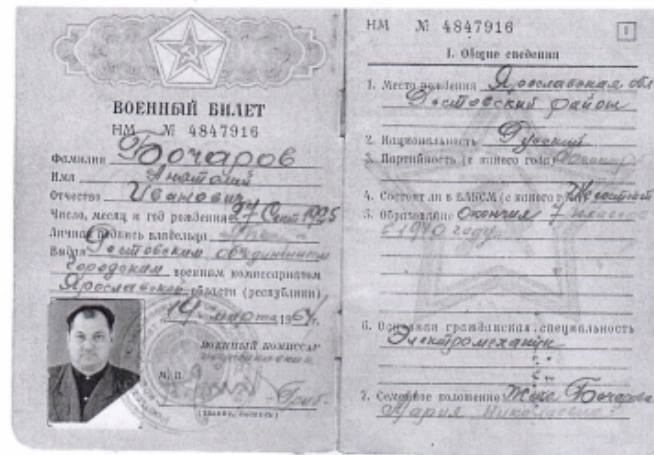 ВОЕННЫЙ БИЛЕТ
НМ № 4847916
Фамилия Бочаров
Имя Анатолий
Отчество Иванович
Число, месяц и год рождения 27 Сент 1925
Личная подпись владельца
Выдан Ростовским объединённым
городским военным комиссариатом
Ярославской области (республики)
14 марта 1964г.
ВОЕННЫЙ КОМИССАР
М. П.
НМ № 4847916
1
I. Общие сведения
1. Место рождения Ярославская обл
Ростовский район
2. Национальность Русский
3. Партийность (с какого года)
4. Состоит ли в ВЛКСМ (с какого
5. Образование Окончил 7 классов
в 1940 году
6. Основная гражданская специальность
Электромеханик
7. Семейное положение Жена Бочарова
Мария Николаевна